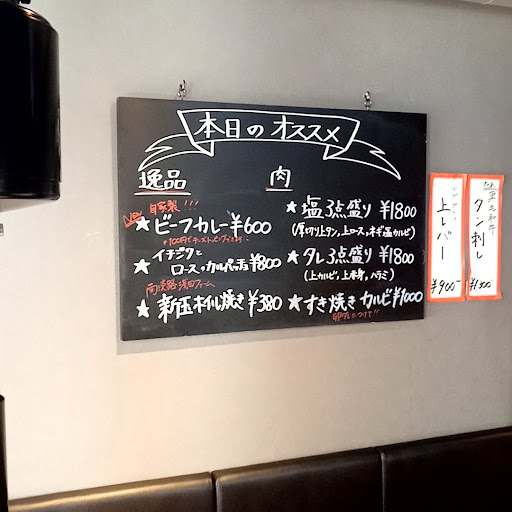 本日のオススメ
逸品
NEW 自家製!!!
★ビーフカレー ¥600
イチジクと
ロースッカルパッチョ¥800
南淡路浅田ファーム
★新玉ホイル焼き¥380
肉
★塩3点盛り ¥1800
(厚切り上タン,上ロース,ネギ塩カルビ)
★タレ3点盛り ¥1800
(上カルビ,上赤身,ハラミ)
★すき焼きカルビ¥1000
上レバー
¥900
黒毛和牛
タン刺し
¥1300